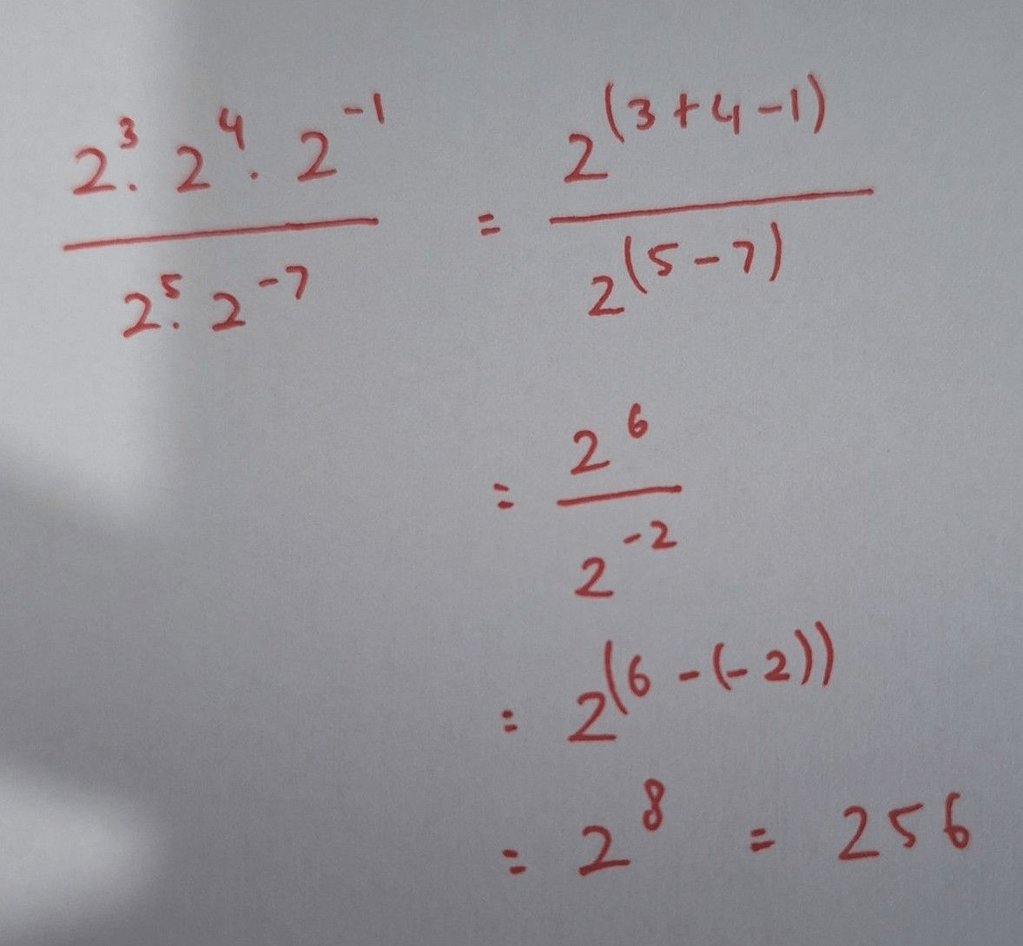 2³. 2⁴. 2⁻¹ / 2⁵. 2⁻⁷ = 2⁽³⁺⁴⁻¹⁾ / 2⁽⁵⁻⁷⁾
= 2⁶ / 2⁻²
= 2⁽⁶⁻⁽⁻²⁾⁾
= 2⁸ = 256